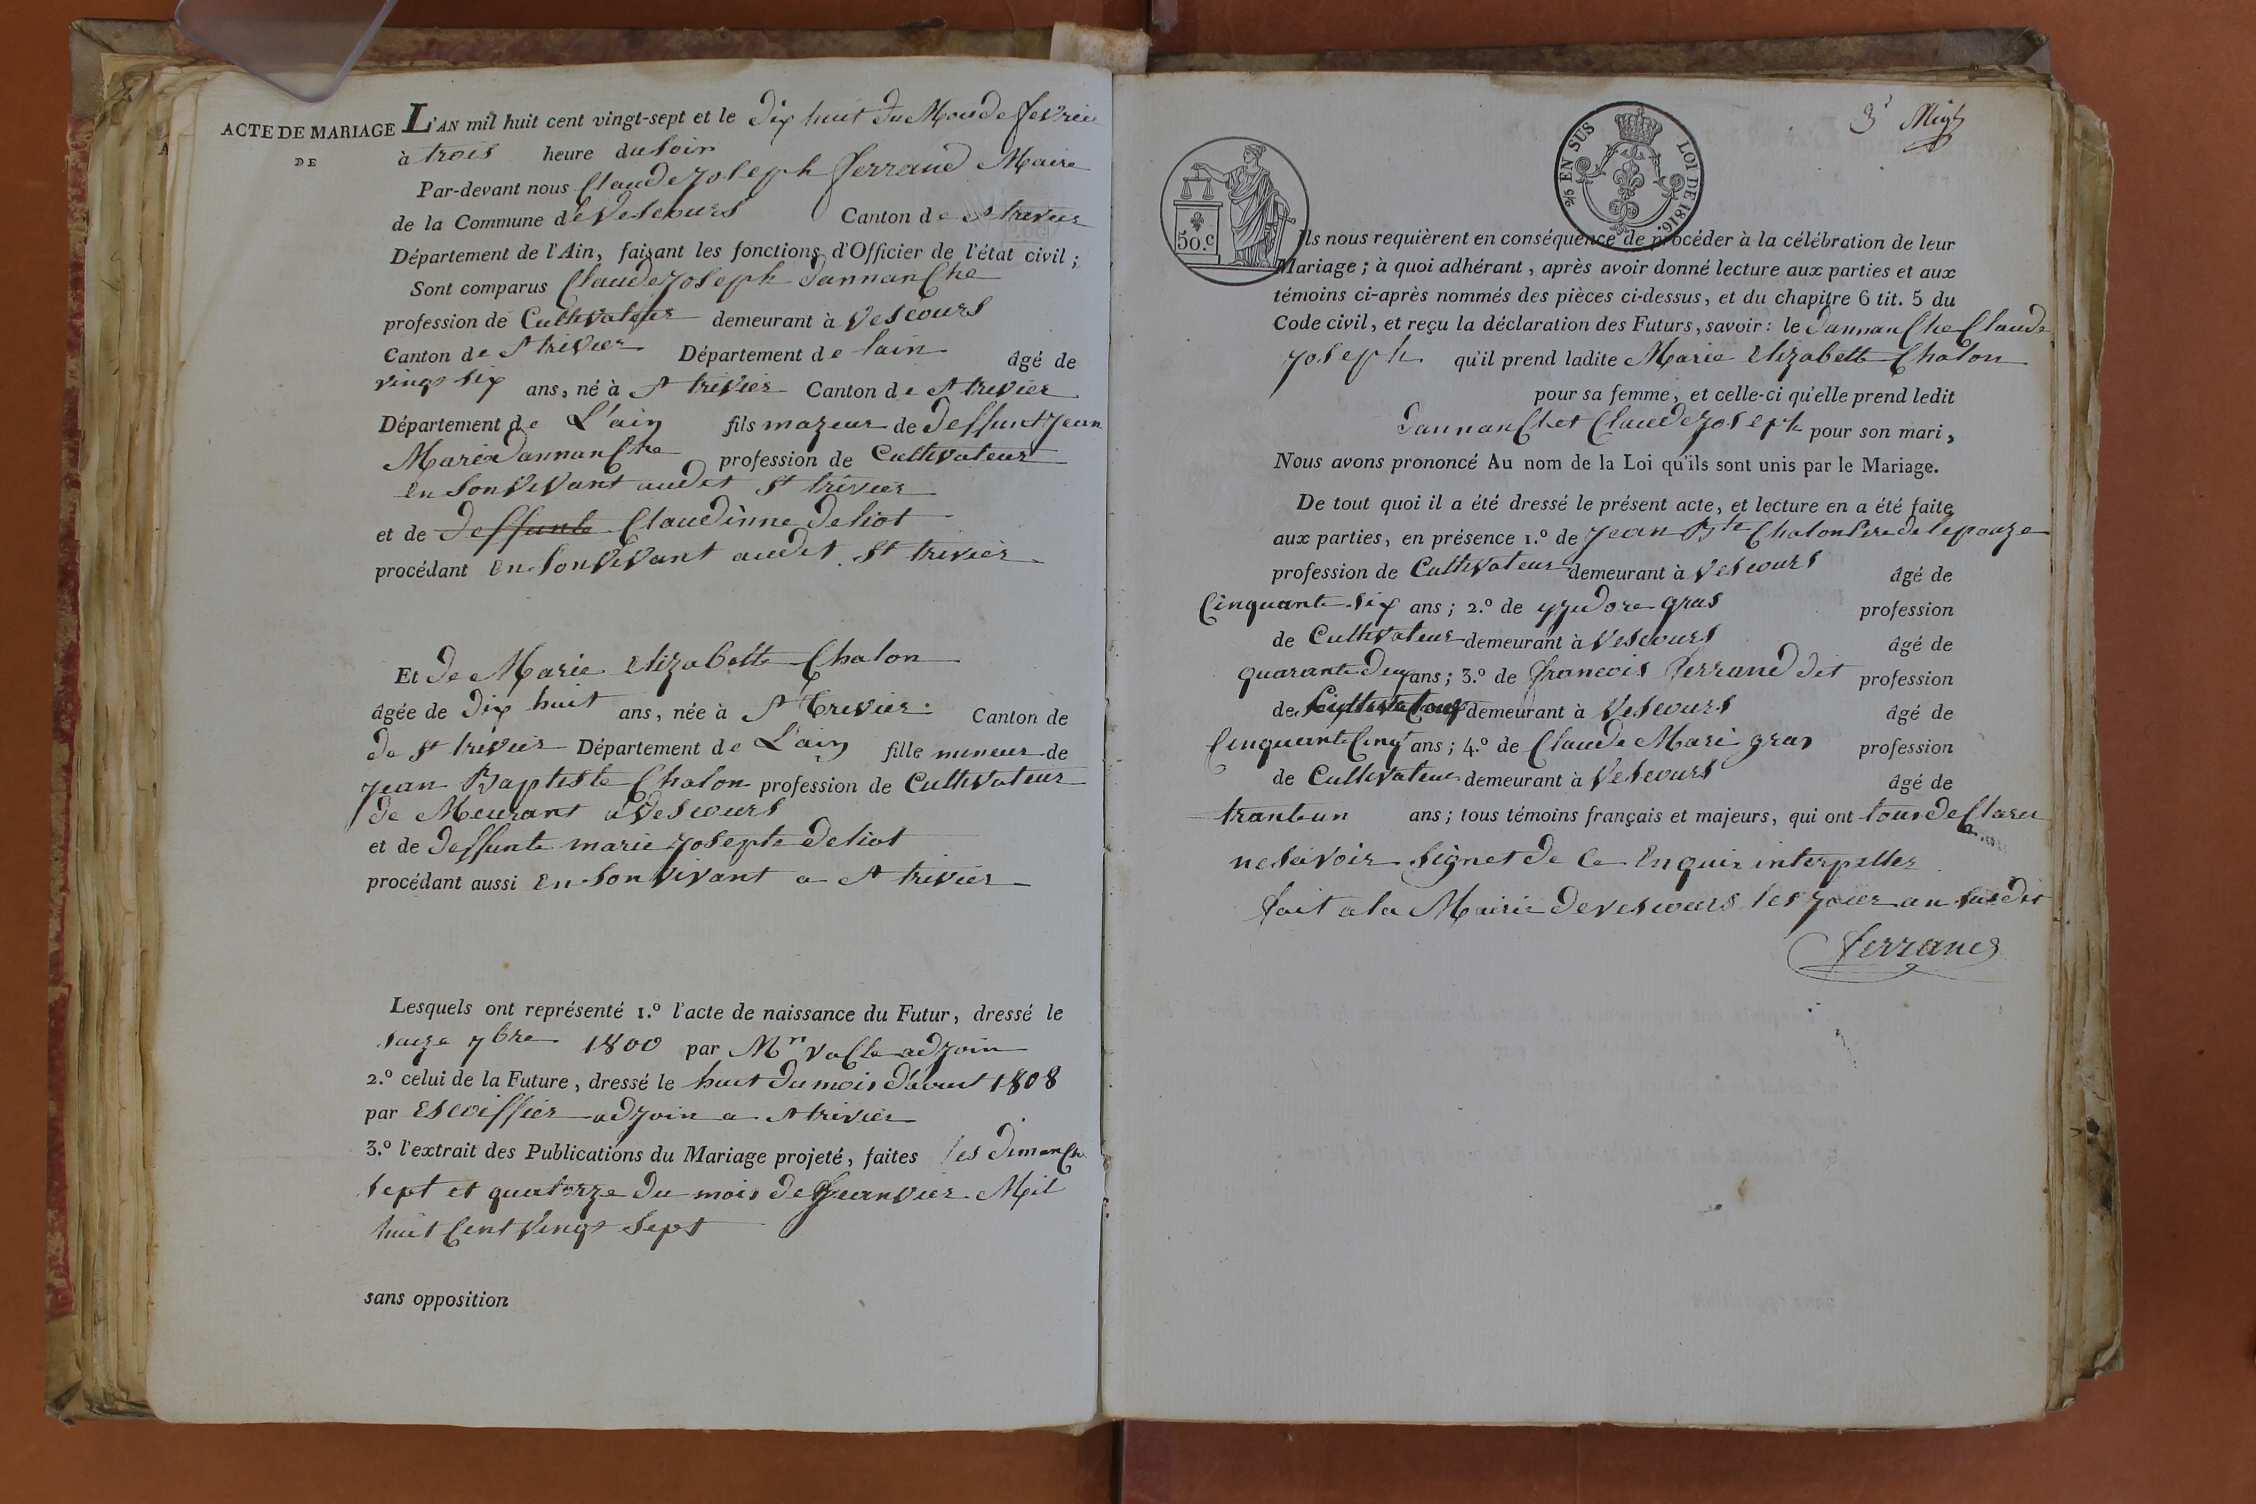 ACTE DE MARIAGE
DE
L'AN mil huit cent vingt-sept et le dix huit du Mois de fevrier
à trois heure du Soir
Par-devant nous Claude Joseph ferrand Maire
de la Commune de Vescours Canton de St trivier
Département de l'Ain, faisant les fonctions d'Officier de l'état civil ;
Sont comparus Claude Joseph dannanche
profession de Cultivateur demeurant à Vescours
Canton de St trivier Département de lain âgé de
vingt six ans, né à St trivier Canton de St trevier
Département de L'ain fils mazeur de deffunt Jean
Marie dannanche profession de Cultivateur
en Son Vivant audit St trivier
et de deffunte Claudinne deliot
procédant en Son Vivant audit St trivier
Et de Marie elizabette Chalon
âgée de dix huit ans, née à St trevier Canton de
de St trivier Département de L'ain fille mineur de
Jean Baptiste Chalon profession de Cultivateur
de Meurant a Vescours
et de deffunte marie Josepte deliot
procédant aussi en Son Vivant a St trivier
Lesquels ont représenté 1.º l'acte de naissance du Futur, dressé le
Saize 7bre 1800 par Mr adjoin
2.º celui de la Future, dressé le huit du mois d'avril 1808
par Escoiffier adjoin a St trivier
3.º l'extrait des Publications du Mariage projeté, faites les dimanche
Sept et quatorze du mois de Jeanvier Mil
huit Cent Vingt Sept
sans opposition
3e
50.c
2/6 EN SUS LOI DE 1816.
Ils nous requièrent en conséquence de procéder à la célébration de leur
Mariage ; à quoi adhérant, après avoir donné lecture aux parties et aux
témoins ci-après nommés des pièces ci-dessus, et du chapitre 6 tit. 5 du
Code civil, et reçu la déclaration des Futurs, savoir : le dannanche Claude
Joseph qu'il prend ladite Marie elizabette Chalon
pour sa femme, et celle-ci qu'elle prend ledit
dannanchet Claude Joseph pour son mari,
Nous avons prononcé Au nom de la Loi qu'ils sont unis par le Mariage.
De tout quoi il a été dressé le présent acte, et lecture en a été faite
aux parties, en présence 1.º de Jean Bte Chalon Pere de lepouze
profession de Cultivateur demeurant à Vescours âgé de
Cinquante Six ans ; 2.º de yzudore gras profession
de Cultivateur demeurant à Vescours âgé de
quarante deux ans ; 3.º de francois ferrand dit profession
de Cultivateur demeurant à Vescours âgé de
Cinquante Cinq ans ; 4.º de Claude Marie gras profession
de Cultivateur demeurant à Vescours âgé de
trante un ans ; tous témoins français et majeurs, qui ont tous declarer
ne Savoir Signet de Ce enquis interpeller
fait a la Mairie de vescours les Jour an Susdit
ferrand